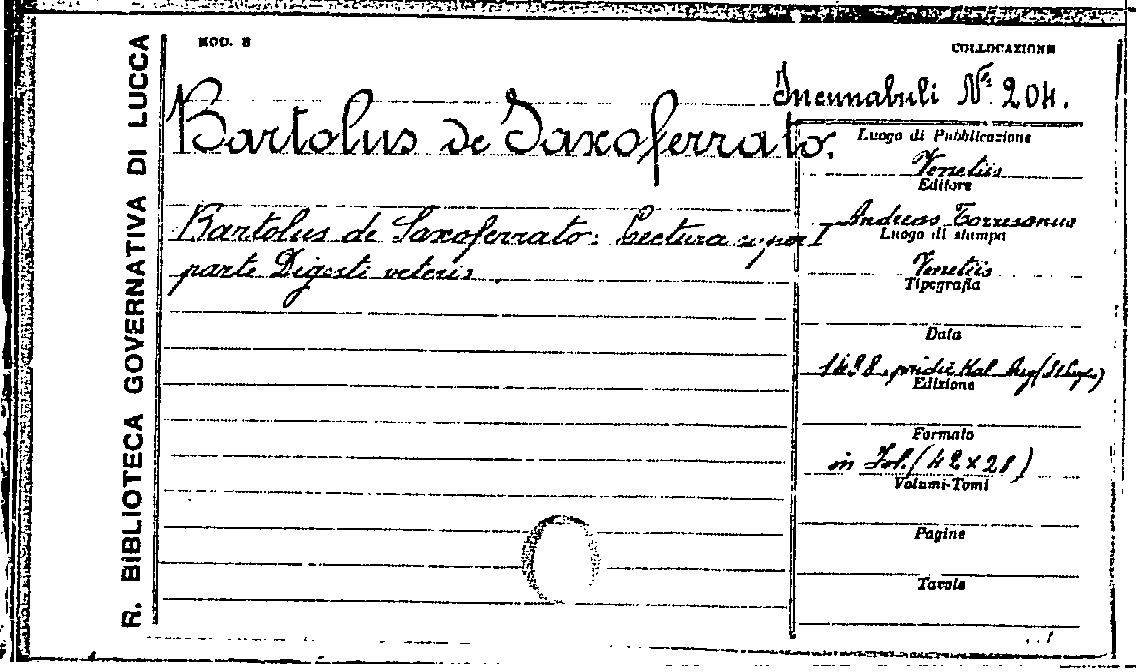 R. BIBLIOTECA GOVERNATIVA DI LUCCA
MOD. 8
COLLOCAZIONE
Incunabuli Nº 204.
Bartolus de Saxoferrato.
Bartolus de Saxoferrato: Lectura super I
parte Digesti veteris
Luogo di Pubblicazione
Venetiis
Editore
Andreas Torresanus
Luogo di stampa
Venetiis
Tipografia
Data
pridie Kal.
Edizione
Formato
in Fol. (42×28)
Volumi-Tomi
Pagine
Tavole